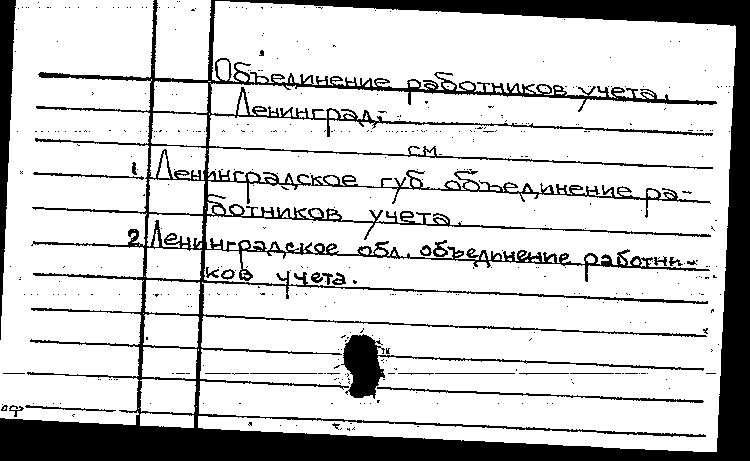 Объединение работников учета.
Ленинград.
см.
1. Ленинградское губ. объединение ра-
ботников учета.
2. Ленинградское обл. объединение работни-
ков учета.